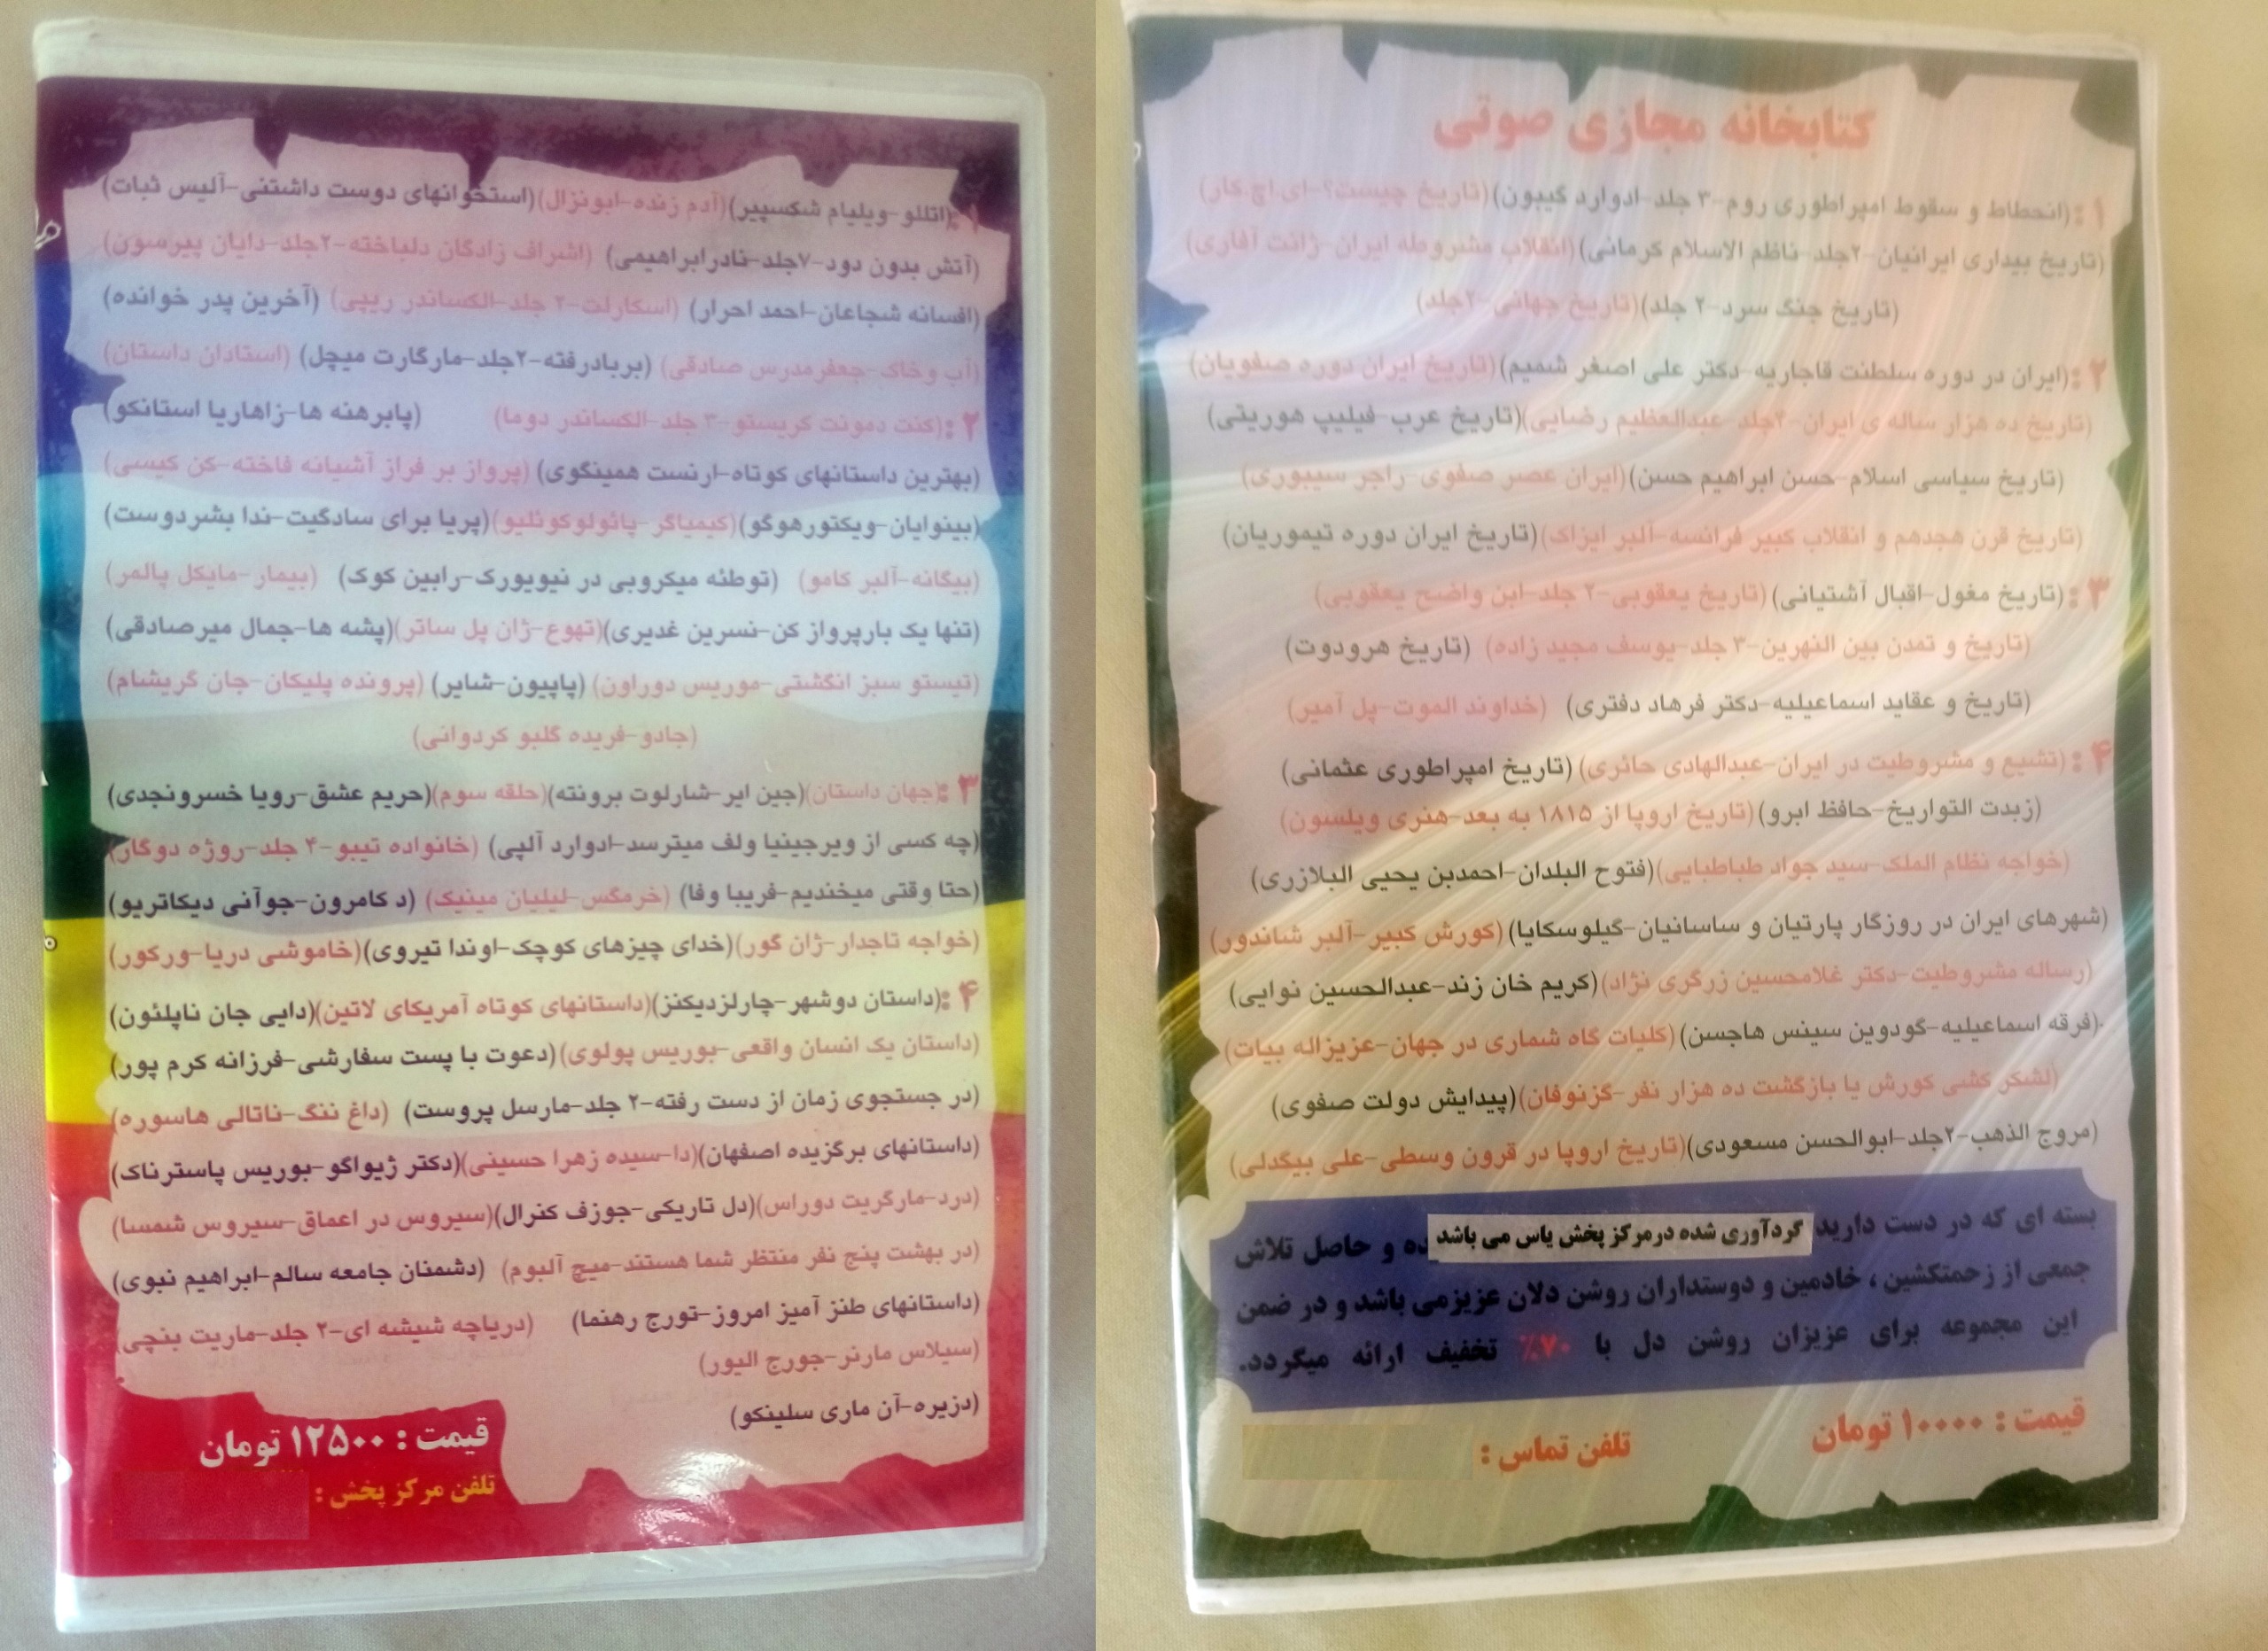 ۱:(اتللو-ویلیام شکسپیر)(آدم زنده-ابونزال)(استخوانهای دوست داشتنی-آلیس ثبات)
(آتش بدون دود-۷جلد-نادرابراهیمی) (اشراف زادگان دلباخته-۲جلد-دایان پیرسون)
(افسانه شجاعان-احمد احرار) (اسکارلت-۲ جلد-الکساندر ریپی) (آخرین پدر خوانده)
(آب و خاک-جعفرمدرس صادقی) (بربادرفته-۲جلد-مارگارت میچل) (استادان داستان)
۲:(کنت دمونت کریستو-۳ جلد-الکساندر دوما) (پابرهنه ها-زاهاریا استانکو)
(بهترین داستانهای کوتاه-ارنست همینگوی) (پرواز بر فراز آشیانه فاخته-کن کیسی)
(بینوایان-ویکتورهوگو)(کیمیاگر-پائولوکوئلیو)(پریا برای سادگیت-ندا بشردوست)
(بیگانه-آلبر کامو) (توطئه میکروبی در نیویورک-رابین کوک) (بیمار-مایکل پالمر)
(تنها یک بارپرواز کن-نسرین غدیری)(تهوع-ژان پل ساتر)(پشه ها-جمال میرصادقی)
(تیستو سبز انگشتی-موریس دوراون) (پاپیون-شایر) (پرونده پلیکان-جان گریشام)
(جادو-فریده گلبو کردوانی)
۳:(جهان داستان)(جین ایر-شارلوت برونته)(حلقه سوم)(حریم عشق-رویا خسرونجدی)
(چه کسی از ویرجینیا ولف میترسد-ادوارد آلپی) (خانواده تیبو-۴ جلد-روژه دوگار)
(حتا وقتی میخندیم-فریبا وفا) (خرمگس-لیلیان مینیک) (د کامرون-جوآنی دیکاتریو)
(خواجه تاجدار-ژان گور)(خدای چیزهای کوچک-اوندا تیروی)(خاموشی دریا-ورکور)
۴:(داستان دوشهر-چارلزدیکنز)(داستانهای کوتاه آمریکای لاتین)(دایی جان ناپلئون)
(داستان یک انسان واقعی-بوریس پولوی)(دعوت با پست سفارشی-فرزانه کرم پور)
(در جستجوی زمان از دست رفته-۲ جلد-مارسل پروست) (داغ ننگ-ناتالی هاسوره)
(داستانهای برگزیده اصفهان)(دا-سیده زهرا حسینی)(دکتر ژیواگو-بوریس پاسترناک)
(درد-مارگریت دوراس)(دل تاریکی-جوزف کنرال)(سیروس در اعماق-سیروس شمسا)
(در بهشت پنج نفر منتظر شما هستند-میچ آلبوم) (دشمنان جامعه سالم-ابراهیم نبوی)
(داستانهای طنز آمیز امروز-تورج رهنما) (دریاچه شیشه ای-۲ جلد-ماریت بنچی)
(سیلاس مارنر-جورج الیور)
(دزیره-آن ماری سلینکو)
قیمت : ۱۲۵۰۰ تومان
تلفن مرکز پخش :
کتابخانه مجازی صوتی
۱:(انحطاط و سقوط امپراطوری روم-۳ جلد-ادوارد گیبون)(تاریخ چیست؟-ای.اچ.کار)
(تاریخ بیداری ایرانیان-۲جلد-ناظم الاسلام کرمانی)(انقلاب مشروطه ایران-ژانت آفاری)
(تاریخ جنگ سرد-۲ جلد)(تاریخ جهانی-۲جلد)
۲:(ایران در دوره سلطنت قاجاریه-دکتر علی اصغر شمیم)(تاریخ ایران دوره صفویان)
(تاریخ ده هزار ساله ی ایران-۴جلد-عبدالعظیم رضایی)(تاریخ عرب-فیلیپ هوریتی)
(تاریخ سیاسی اسلام-حسن ابراهیم حسن)(ایران عصر صفوی-راجر سیبوری)
(تاریخ قرن هجدهم و انقلاب کبیر فرانسه-آلبر ایزاک)(تاریخ ایران دوره تیموریان)
۳:(تاریخ مغول-اقبال آشتیانی)(تاریخ یعقوبی-۲ جلد-ابن واضح یعقوبی)
(تاریخ و تمدن بین النهرین-۳ جلد-یوسف مجید زاده) (تاریخ هرودوت)
(تاریخ و عقاید اسماعیلیه-دکتر فرهاد دفتری) (خداوند الموت-پل آمیر)
۴:(تشیع و مشروطیت در ایران-عبدالهادی حائری)(تاریخ امپراطوری عثمانی)
(زبدت التواریخ-حافظ ابرو)(تاریخ اروپا از ۱۸۱۵ به بعد-هنری ویلسون)
(خواجه نظام الملک-سید جواد طباطبایی)(فتوح البلدان-احمدبن یحیی البلازری)
(شهرهای ایران در روزگار پارتیان و ساسانیان-گیلوسکایا)(کورش کبیر-آلبر شاندور)
(رساله مشروطیت-دکتر غلامحسین زرگری نژاد)(کریم خان زند-عبدالحسین نوایی)
(فرقه اسماعیلیه-گودوین سینس هاجسن)(کلیات گاه شماری در جهان-عزیزاله بیات)
(لشکر کشی کورش یا بازگشت ده هزار نفر-گزنوفان)(پیدایش دولت صفوی)
(مروج الذهب-۲جلد-ابوالحسن مسعودی)(تاریخ اروپا در قرون وسطی-علی بیگدلی)
بسته ای که در دست دارید گردآوری شده درمرکز پخش یاس می باشد ده و حاصل تلاش
جمعی از زحمتکشین ، خادمین و دوستداران روشن دلان عزیزمی باشد و در ضمن
این مجموعه برای عزیزان روشن دل با ۷۰٪ تخفیف ارائه میگردد.
قیمت : ۱۰۰۰۰ تومان
تلفن تماس :